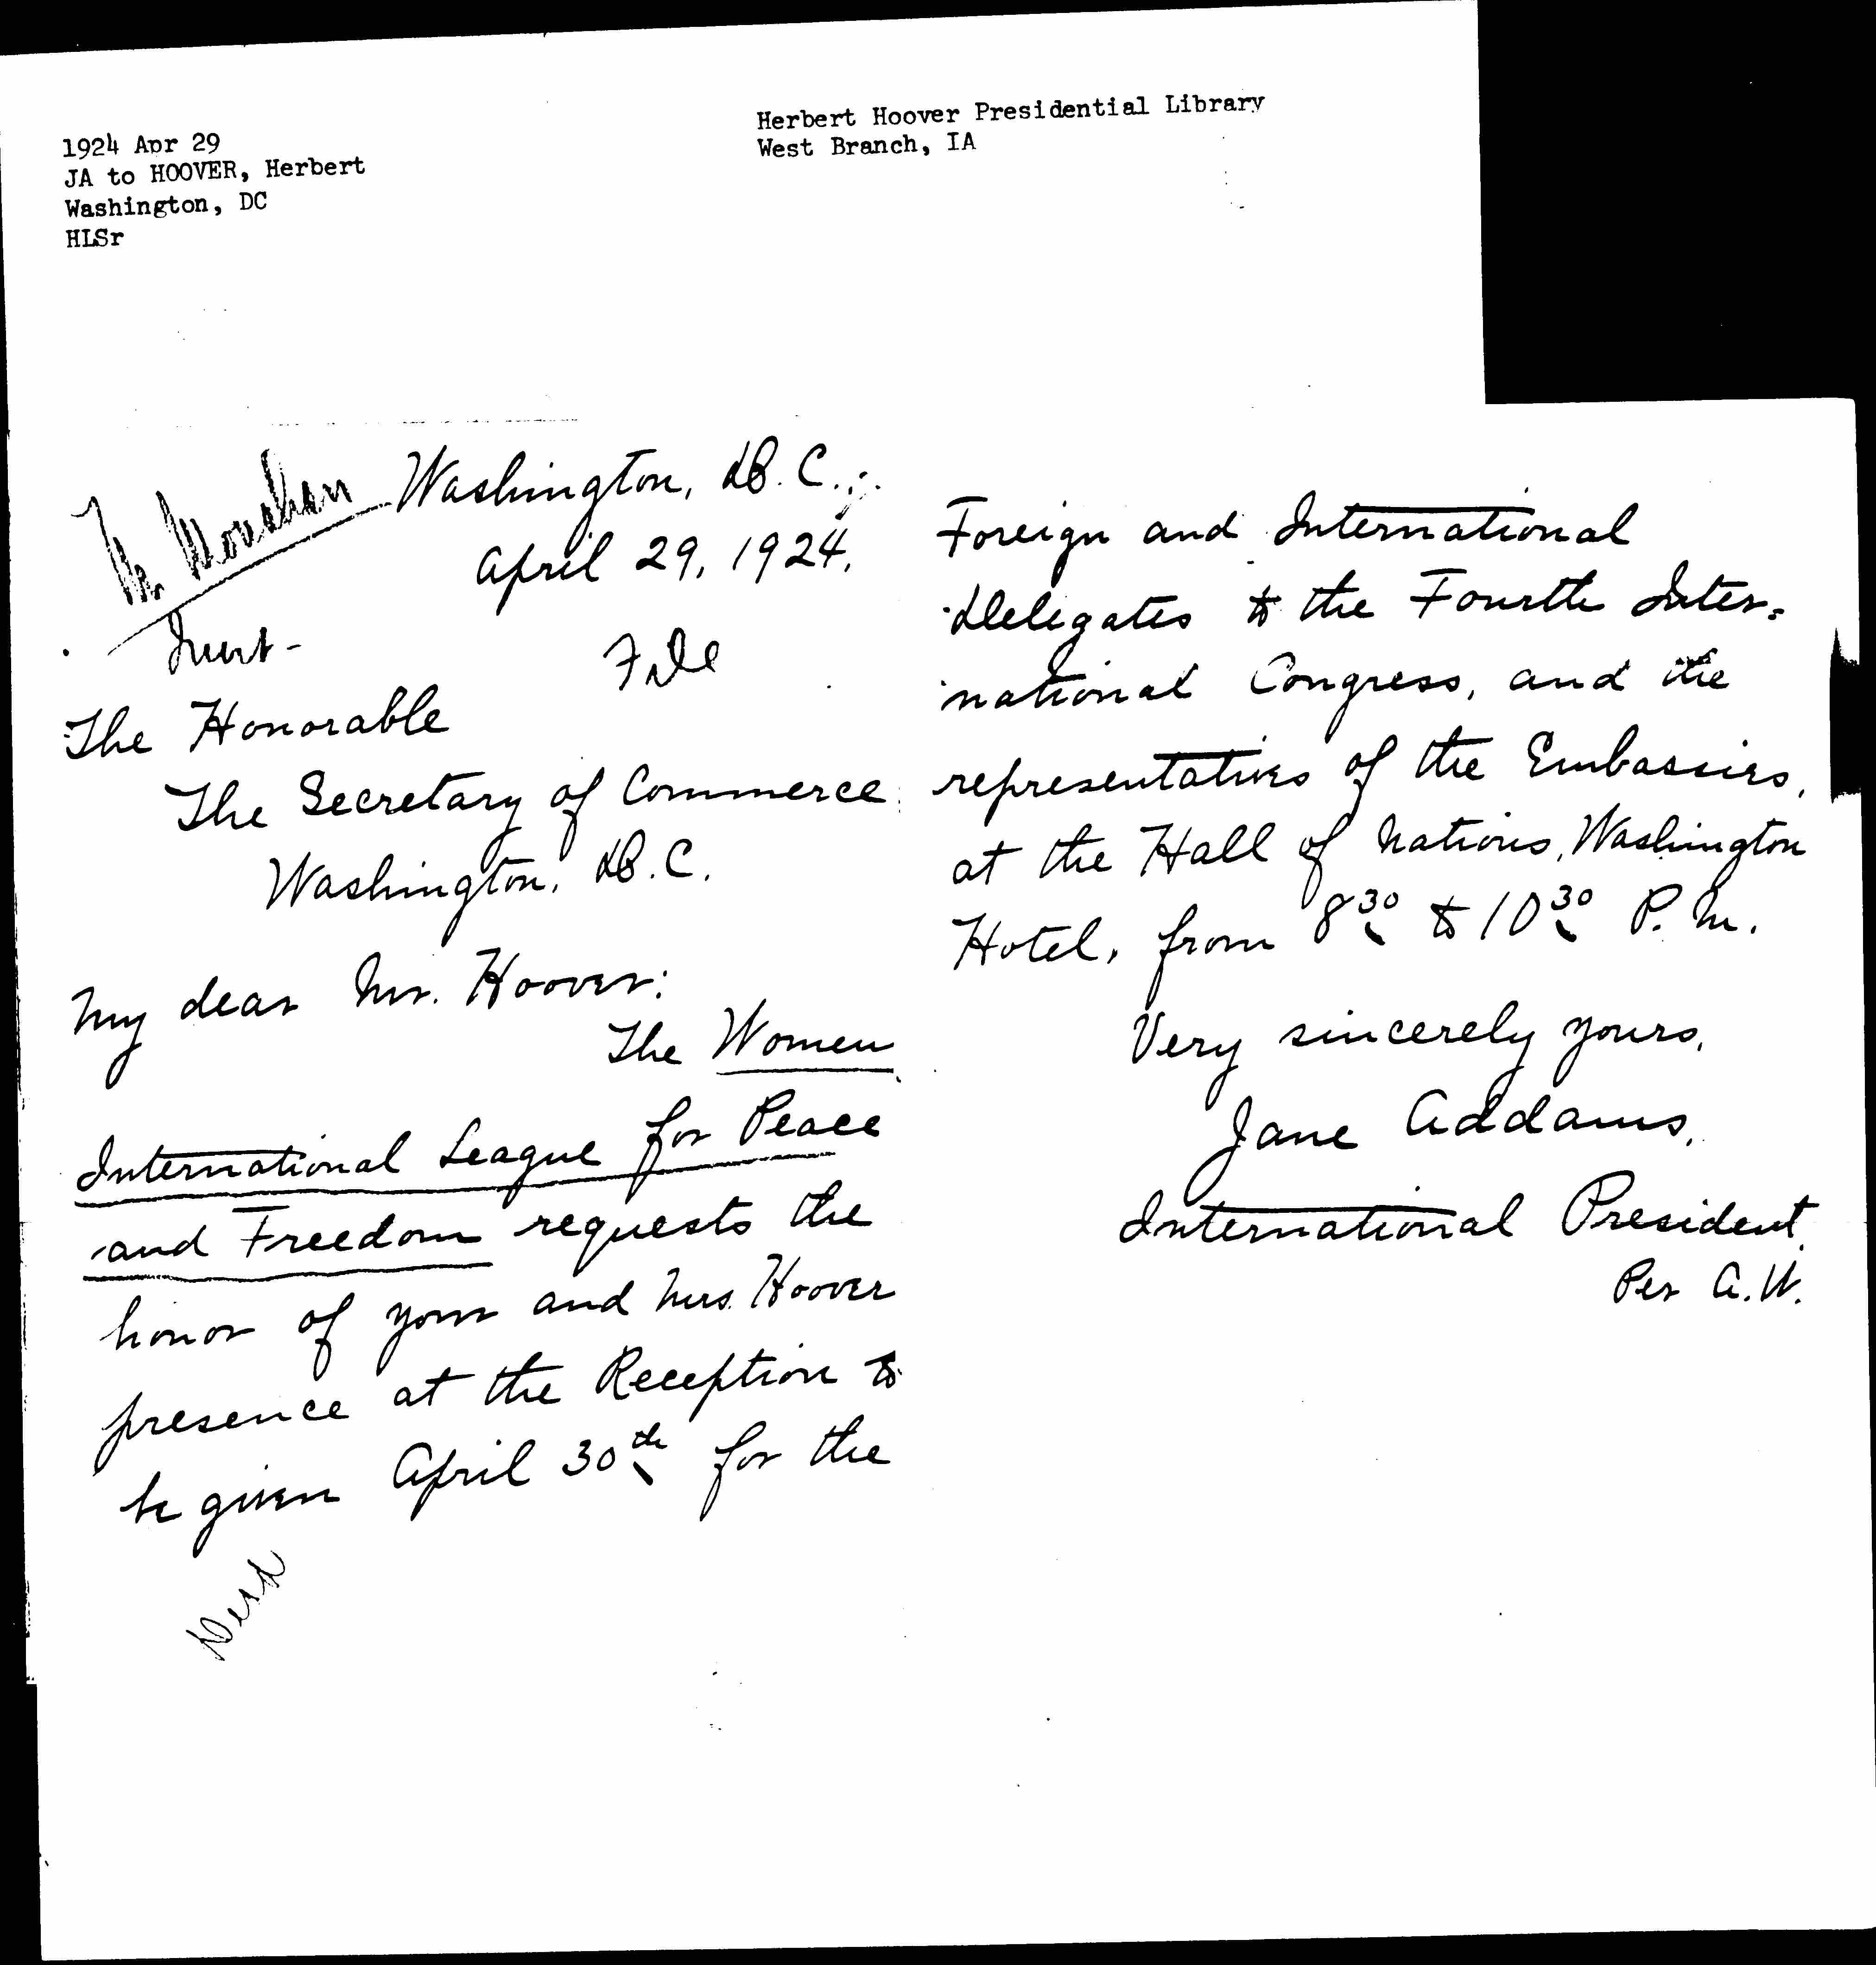 1924 Apr 29
JA to HOOVER, Herbert
Washington, DC
HLSr
Herbert Hoover Presidential Library
West Branch, IA
Washington, D.C.,
April 29, 1924.
File
The Honorable
The Secretary of Commerce
Washington, D.C.
My dear Mr. Hoover:
The Women
International League for Peace
and Freedom requests the
honor of your and Mrs. Hoover
presence at the Reception to
be given April 30th for the
Foreign and International
Delegates to the Fourth Inter=
national Congress, and the
representatives of the Embassies,
at the Hall of Nations, Washington
Hotel, from 8 30 to 10 30 P.M.
Very sincerely yours,
Jane Addams,
International President.
Per A.W.